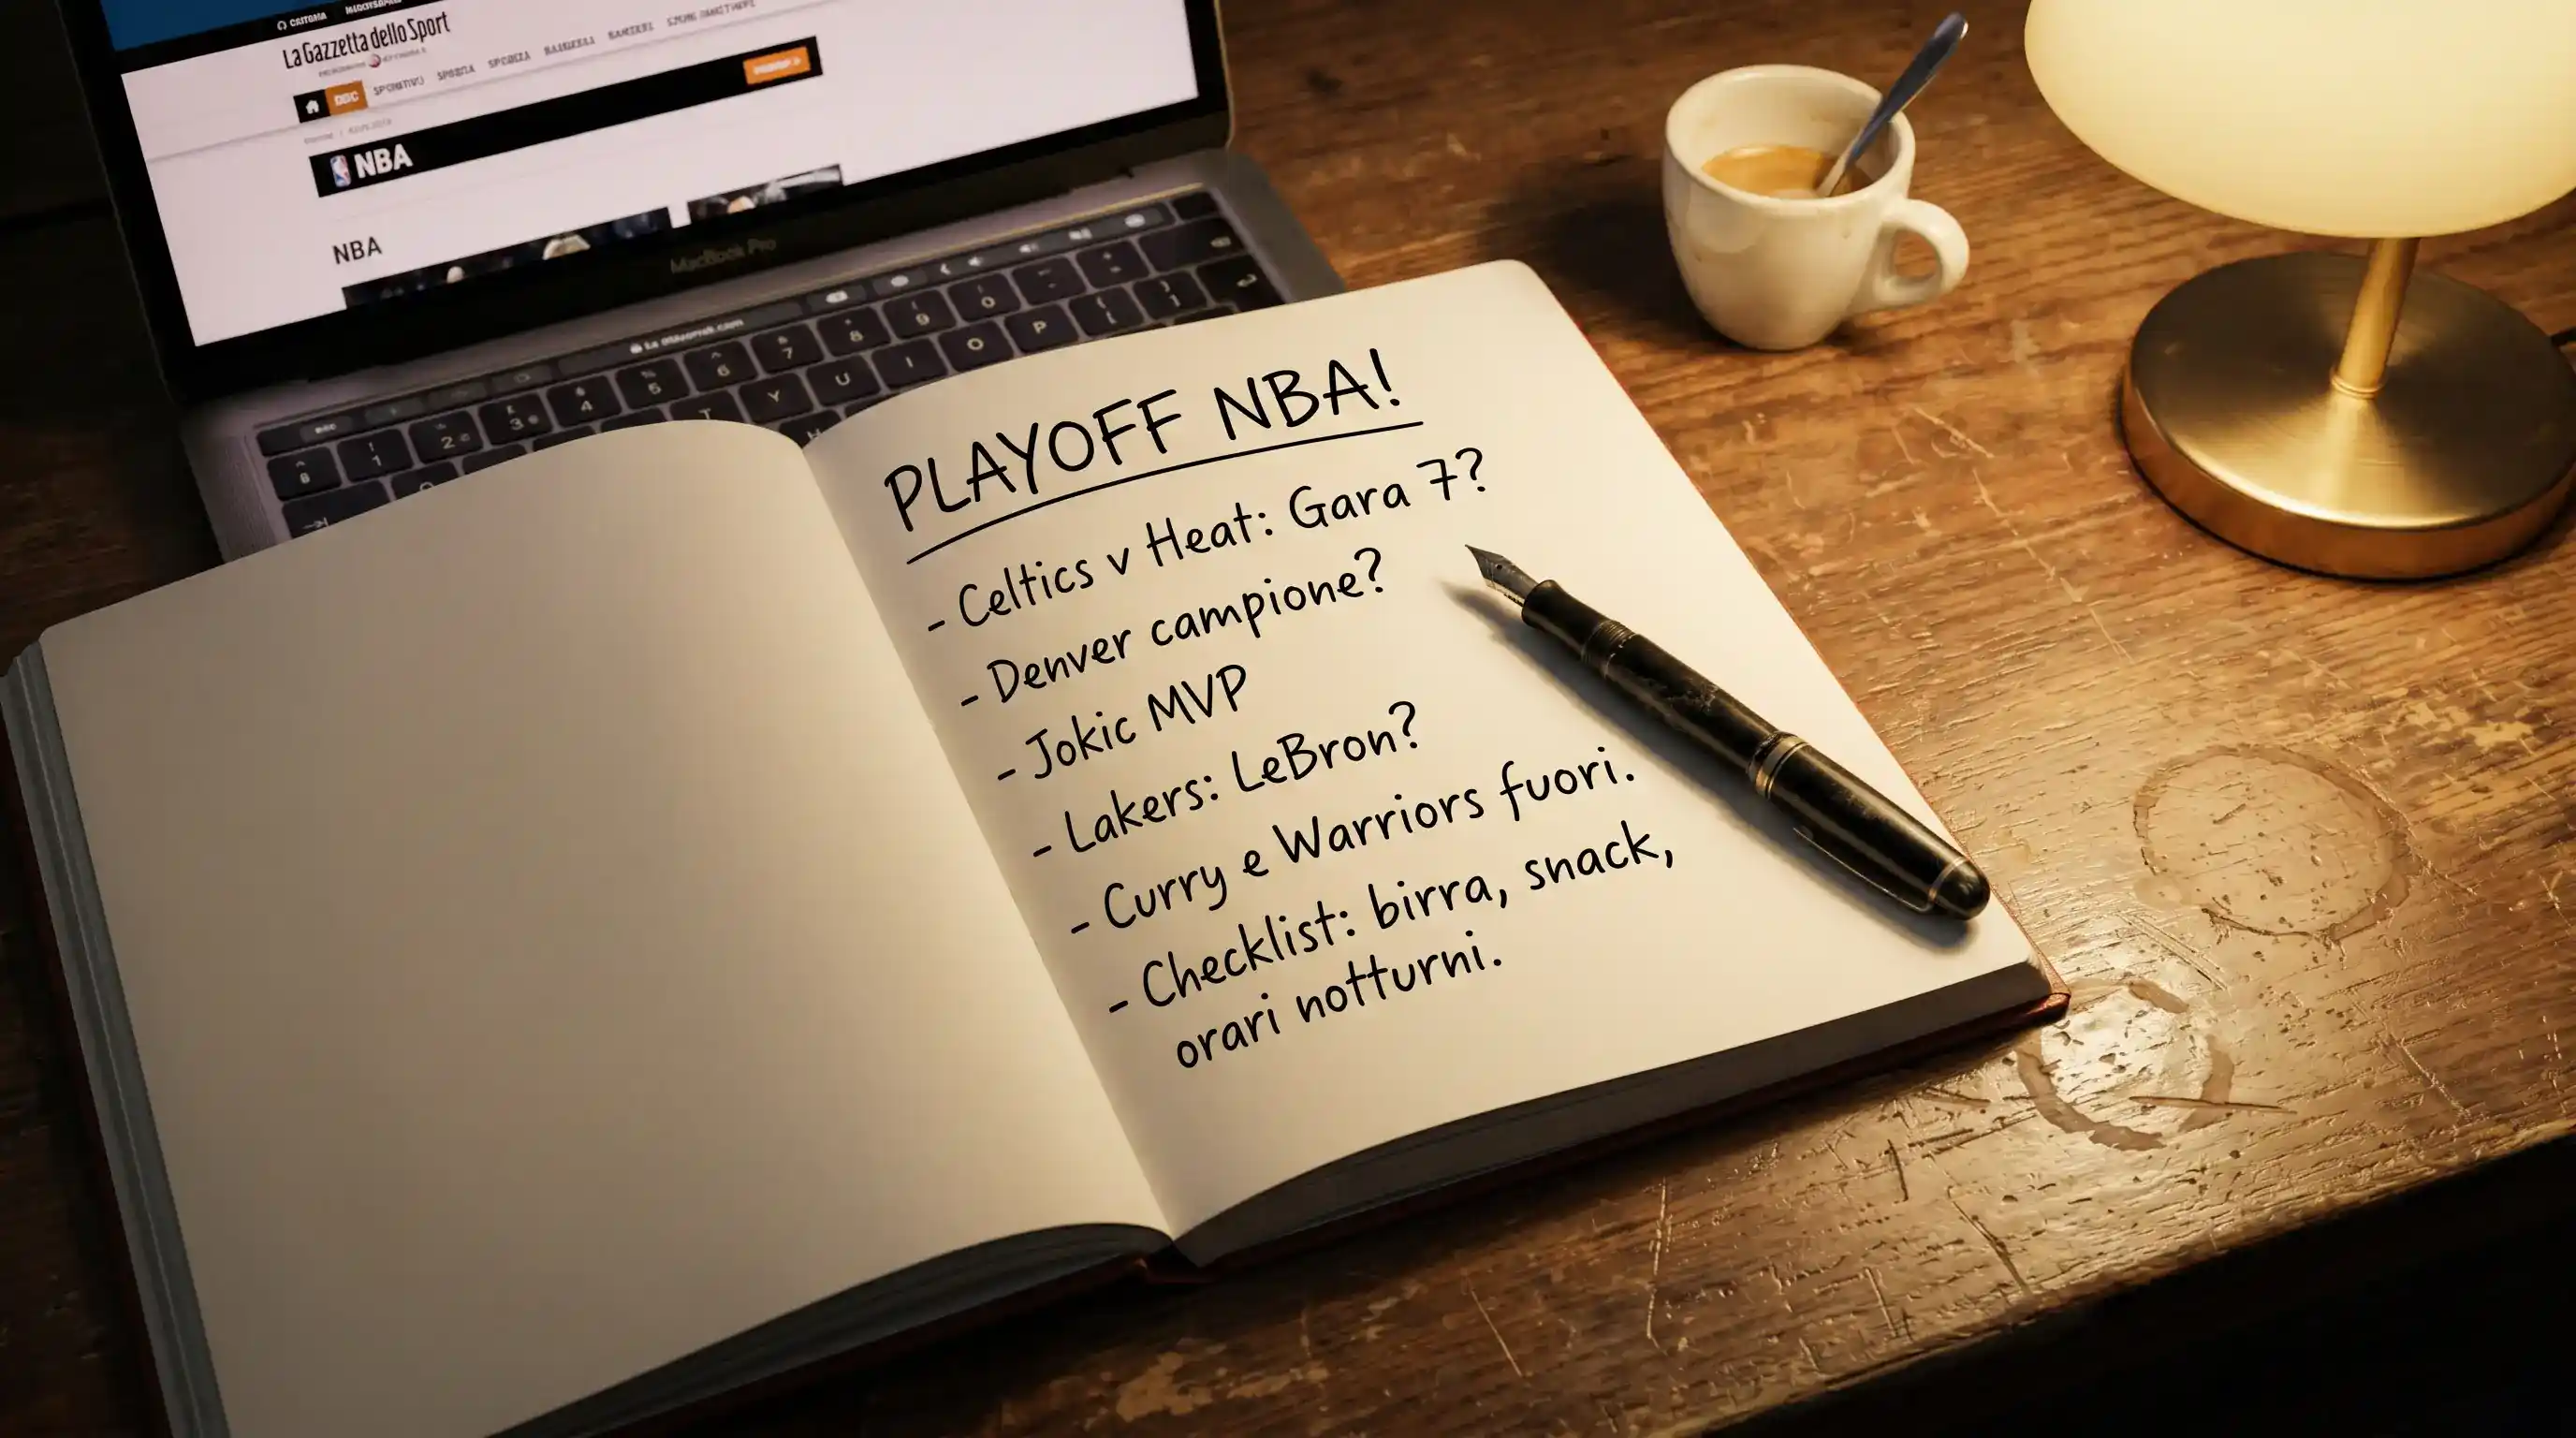 La Gazzetta dello Sport
NBA
NBA
MacBook Pro
PLAYOFF NBA!
- Celtics v Heat: Gara 7?
- Denver campione?
- Jokic MVP
- Lakers: LeBron?
- Curry e Warriors fuori.
- Checklist: birra, snack,
orari notturni.